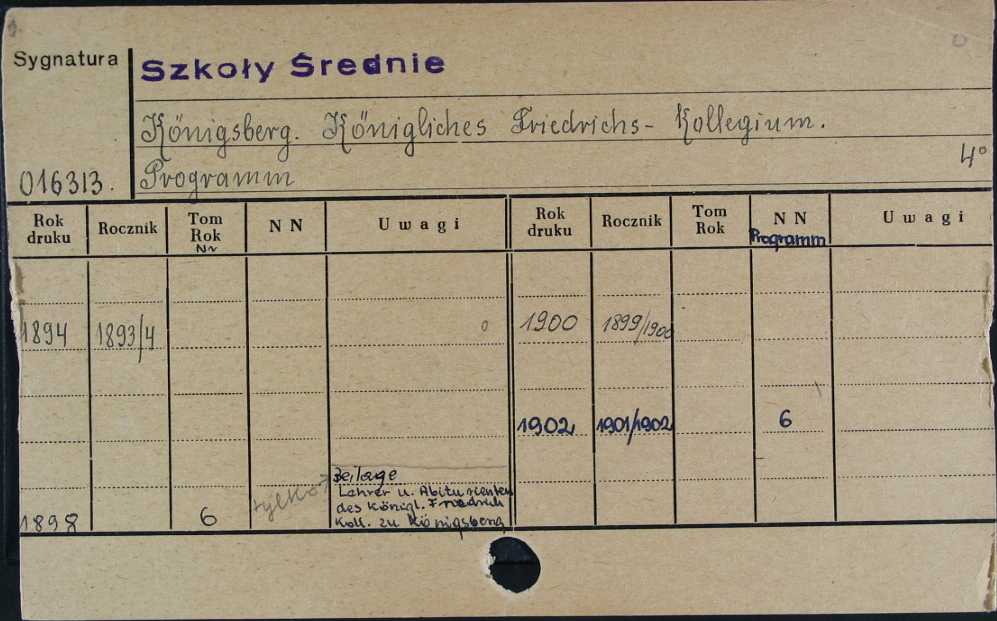 Sygnatura
Szkoły Średnie
Königsberg. Königliches Friedrichs- Kollegium.
4°
016313. Programm
Rok druku Rocznik Tom Rok Nr N N Uwagi Rok druku Rocznik Tom Rok N N Programm Uwagi
1894 1893/4 1900 1899/1900
1902 1901/1902 6
Beilage
Lehrer u. Abiturienten
des Königl. Friedrich
1898 6 tylko Koll. zu Königsberg